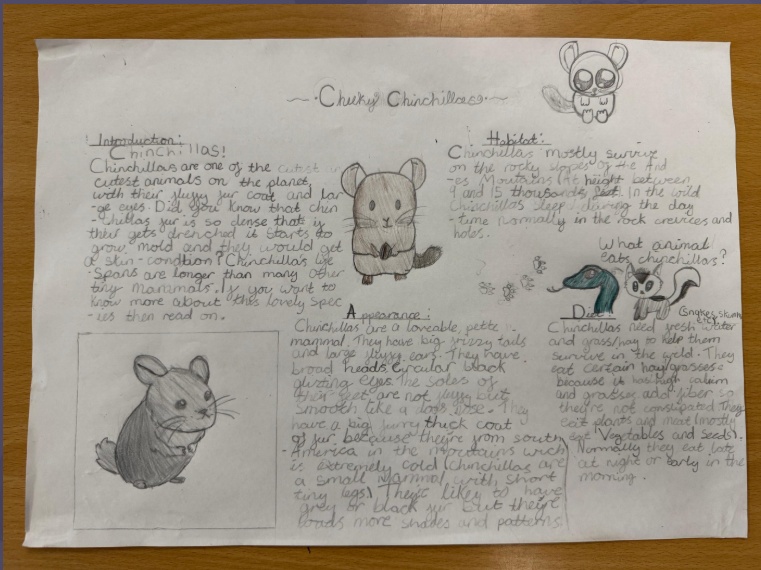 ~·Cheeky Chinchillas·~
Introduction:
Chinchillas!
Chinchillas are one of the cutest
cutest animals on the planet
with their fluffy fur coat and lar
ge eyes. Did you know that chin
-chillas fur is so dense that if
their gets drenched it starts to
grow mold and they would get
a skin-condtion? Chinchillas life
-spans are longer than many other
tiny mammals. If you want to
know more about this lovely spec
-ies then read on.
Habitat:
Chinchillas mostly survive
on the rocky slopes of the And
-es Moutains at height between
9 and 15 thousands feet. In the wild
Chinchillas sleep during the day
-time normally in the rock crevices and
holes.
What animal
eats chinchillas?
(Snakes, skunk
Appearance:
Chinchillas are a loveable, petite
mammal. They have big frizzy tails
and large fluffy ears. They have
broad heads, circular black
eyes. The soles of
their feet are not fluffy but
smooth like a dogs nose. They
have a big furry thick coat
of fur because they're from south
-America in the mountains wich
is extremely cold (Chinchillas are
a small mammal with short
tiny legs) They're likely to have
grey or black fur but they're
loads more shades and patterns
Diet:
Chinchillas need fresh water
and grass/hay to help them
survive in the wild. They
eat certain hay/grasses
because it has high
and grasses and fiber so
they're not constipated They
eat plants and meat (mostly
eat Vegetables and seeds).
Normally they eat late
at night or early in the
morning.